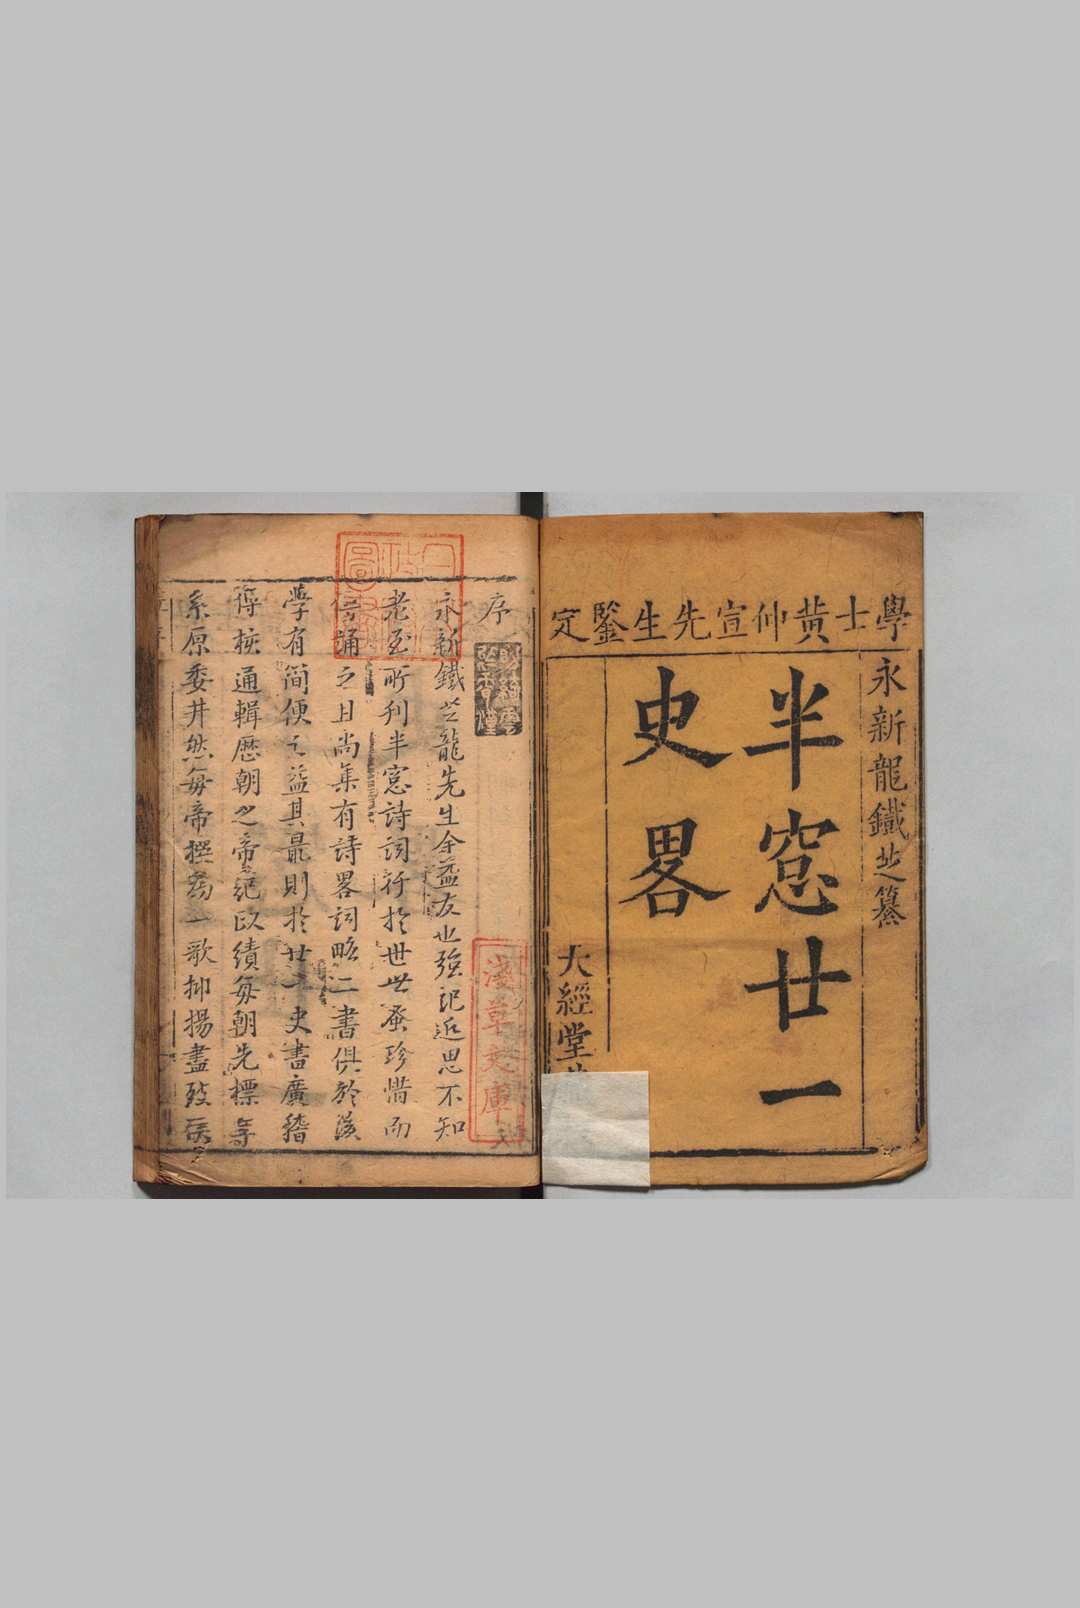 學士黄仲宣先生鑒定
永新龍鐵芝纂
半窓廿一
史畧
大經堂
序
永新鐵芝龍先生余益友也強記近思不知
老至所刊半窓詩詞行於世世蚤珍惜而
誦之且尚集有詩畧詞畧二書俱於後
學有簡便之益其最則於廿一史書廣稽
得核通輯歷朝之帝紀以績每朝先標年
系原委井然每帝撰為一歌抑揚盡致
淺草文庫